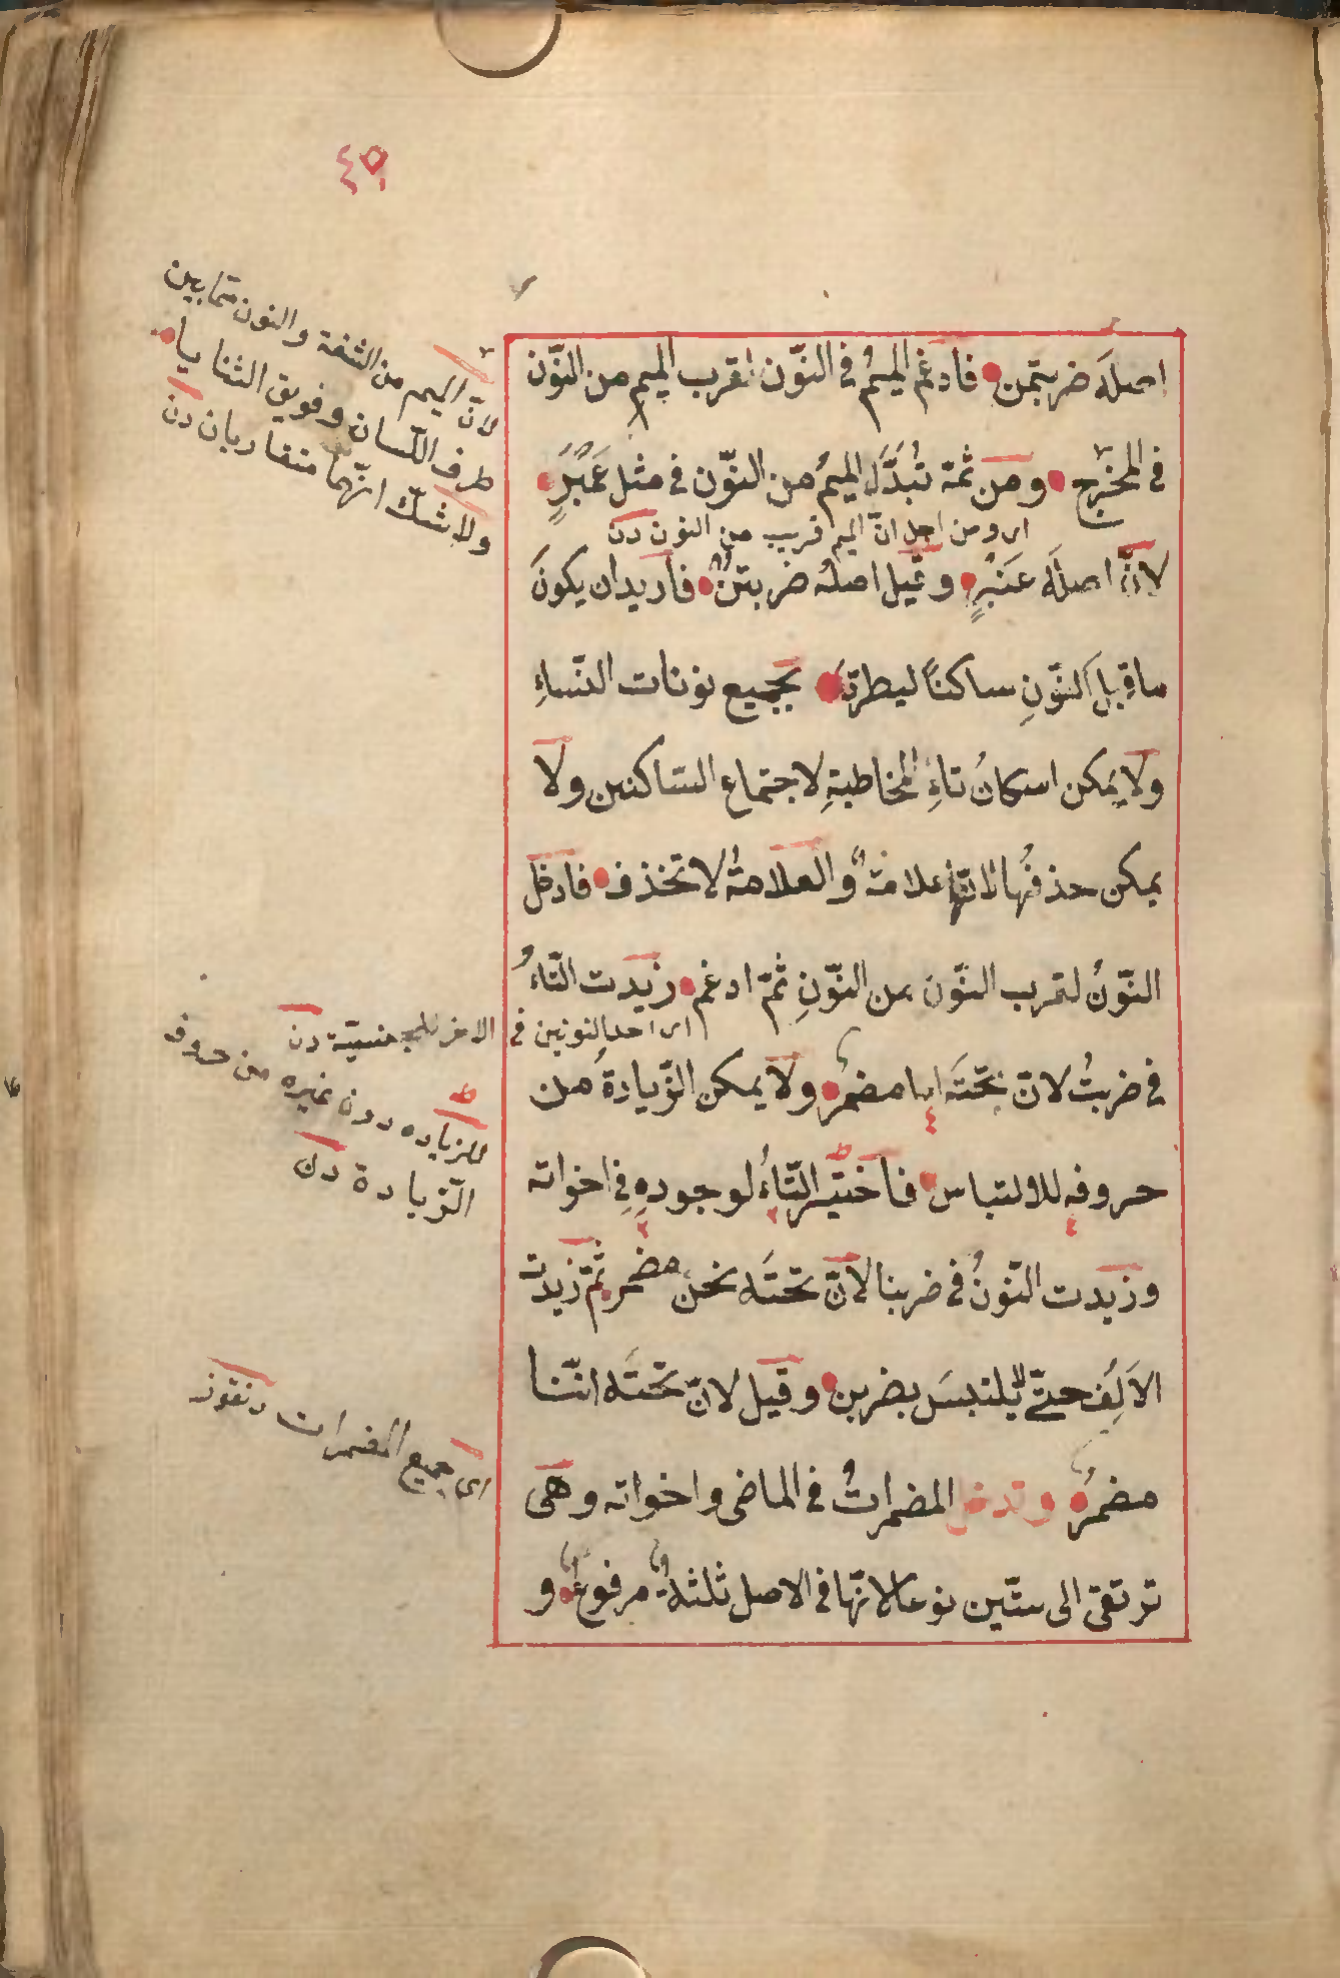 ٤٥
اصلَه ضربتمن فادغم الميمُ فى النّون لقرب الميم من النّون
فى المخرج ومن ثمة تُبدَّل الميمُ من النّون فى مثل عَمْبَرٍ
اى ومن اجل انّ الميم قريب من النون دن
لانّ اصلَه عَنْبَرٍ وقيل اصله ضربتنْ فاريد ان يكونَ
ما قبلَ النّونِ ساكنًا ليطرّد بجميع نونات النّساءِ
ولا يمكن اسكانُ تاءِ المخاطبةِ لاجتماع السّاكنين ولا
يمكن حذفُها لانّها علامةٌ والعلامةُ لا تحذف فادخل
النّونُ لقرب النّون من النّونِ ثمّ ادغم زيدت التّاءُ
اى احد النونين فى الاخر للجنسيّة دن
فى ضربتُ لانّ تحتَه انا مضمرٌ ولا يمكن الزّيادةُ من
حروفه للالتباس فاختير التّاءُ لوجودهِ فى اخواته
وزيدت النّونُ فى ضربنا لانّ تحتَه نحن مضمر ثمّ زيدت
الالِفُ حتّى لا يلتبسَ بضربن وقيل لانّ تحتَه انّنا
مضمرٌ وتدخل المضمراتُ فى الماضى واخواته وهى
ترتقى الى ستّين نوعا لانّها فى الاصل ثلثةٌ مرفوعٌ و
لانّ الميم من الشفة والنون ممّا بين
طرف اللّسان وفويق الثنايا
ولا شكّ انّهما متقاربان دن
للزياده دون غيره من حروف
الزّيادة دن
اى جميع المضمرات دنقوز